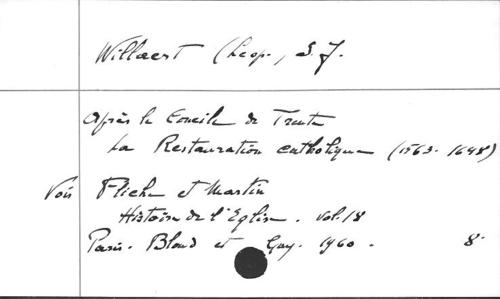 Willaert (Leop., S.J.
Après le Concile de Trente
La Restauration catholique (1563-1648)
Voir Fliche et Martin
Histoire de l'Eglise. vol. 18
Paris. Bloud et Gay. 1960. 8°